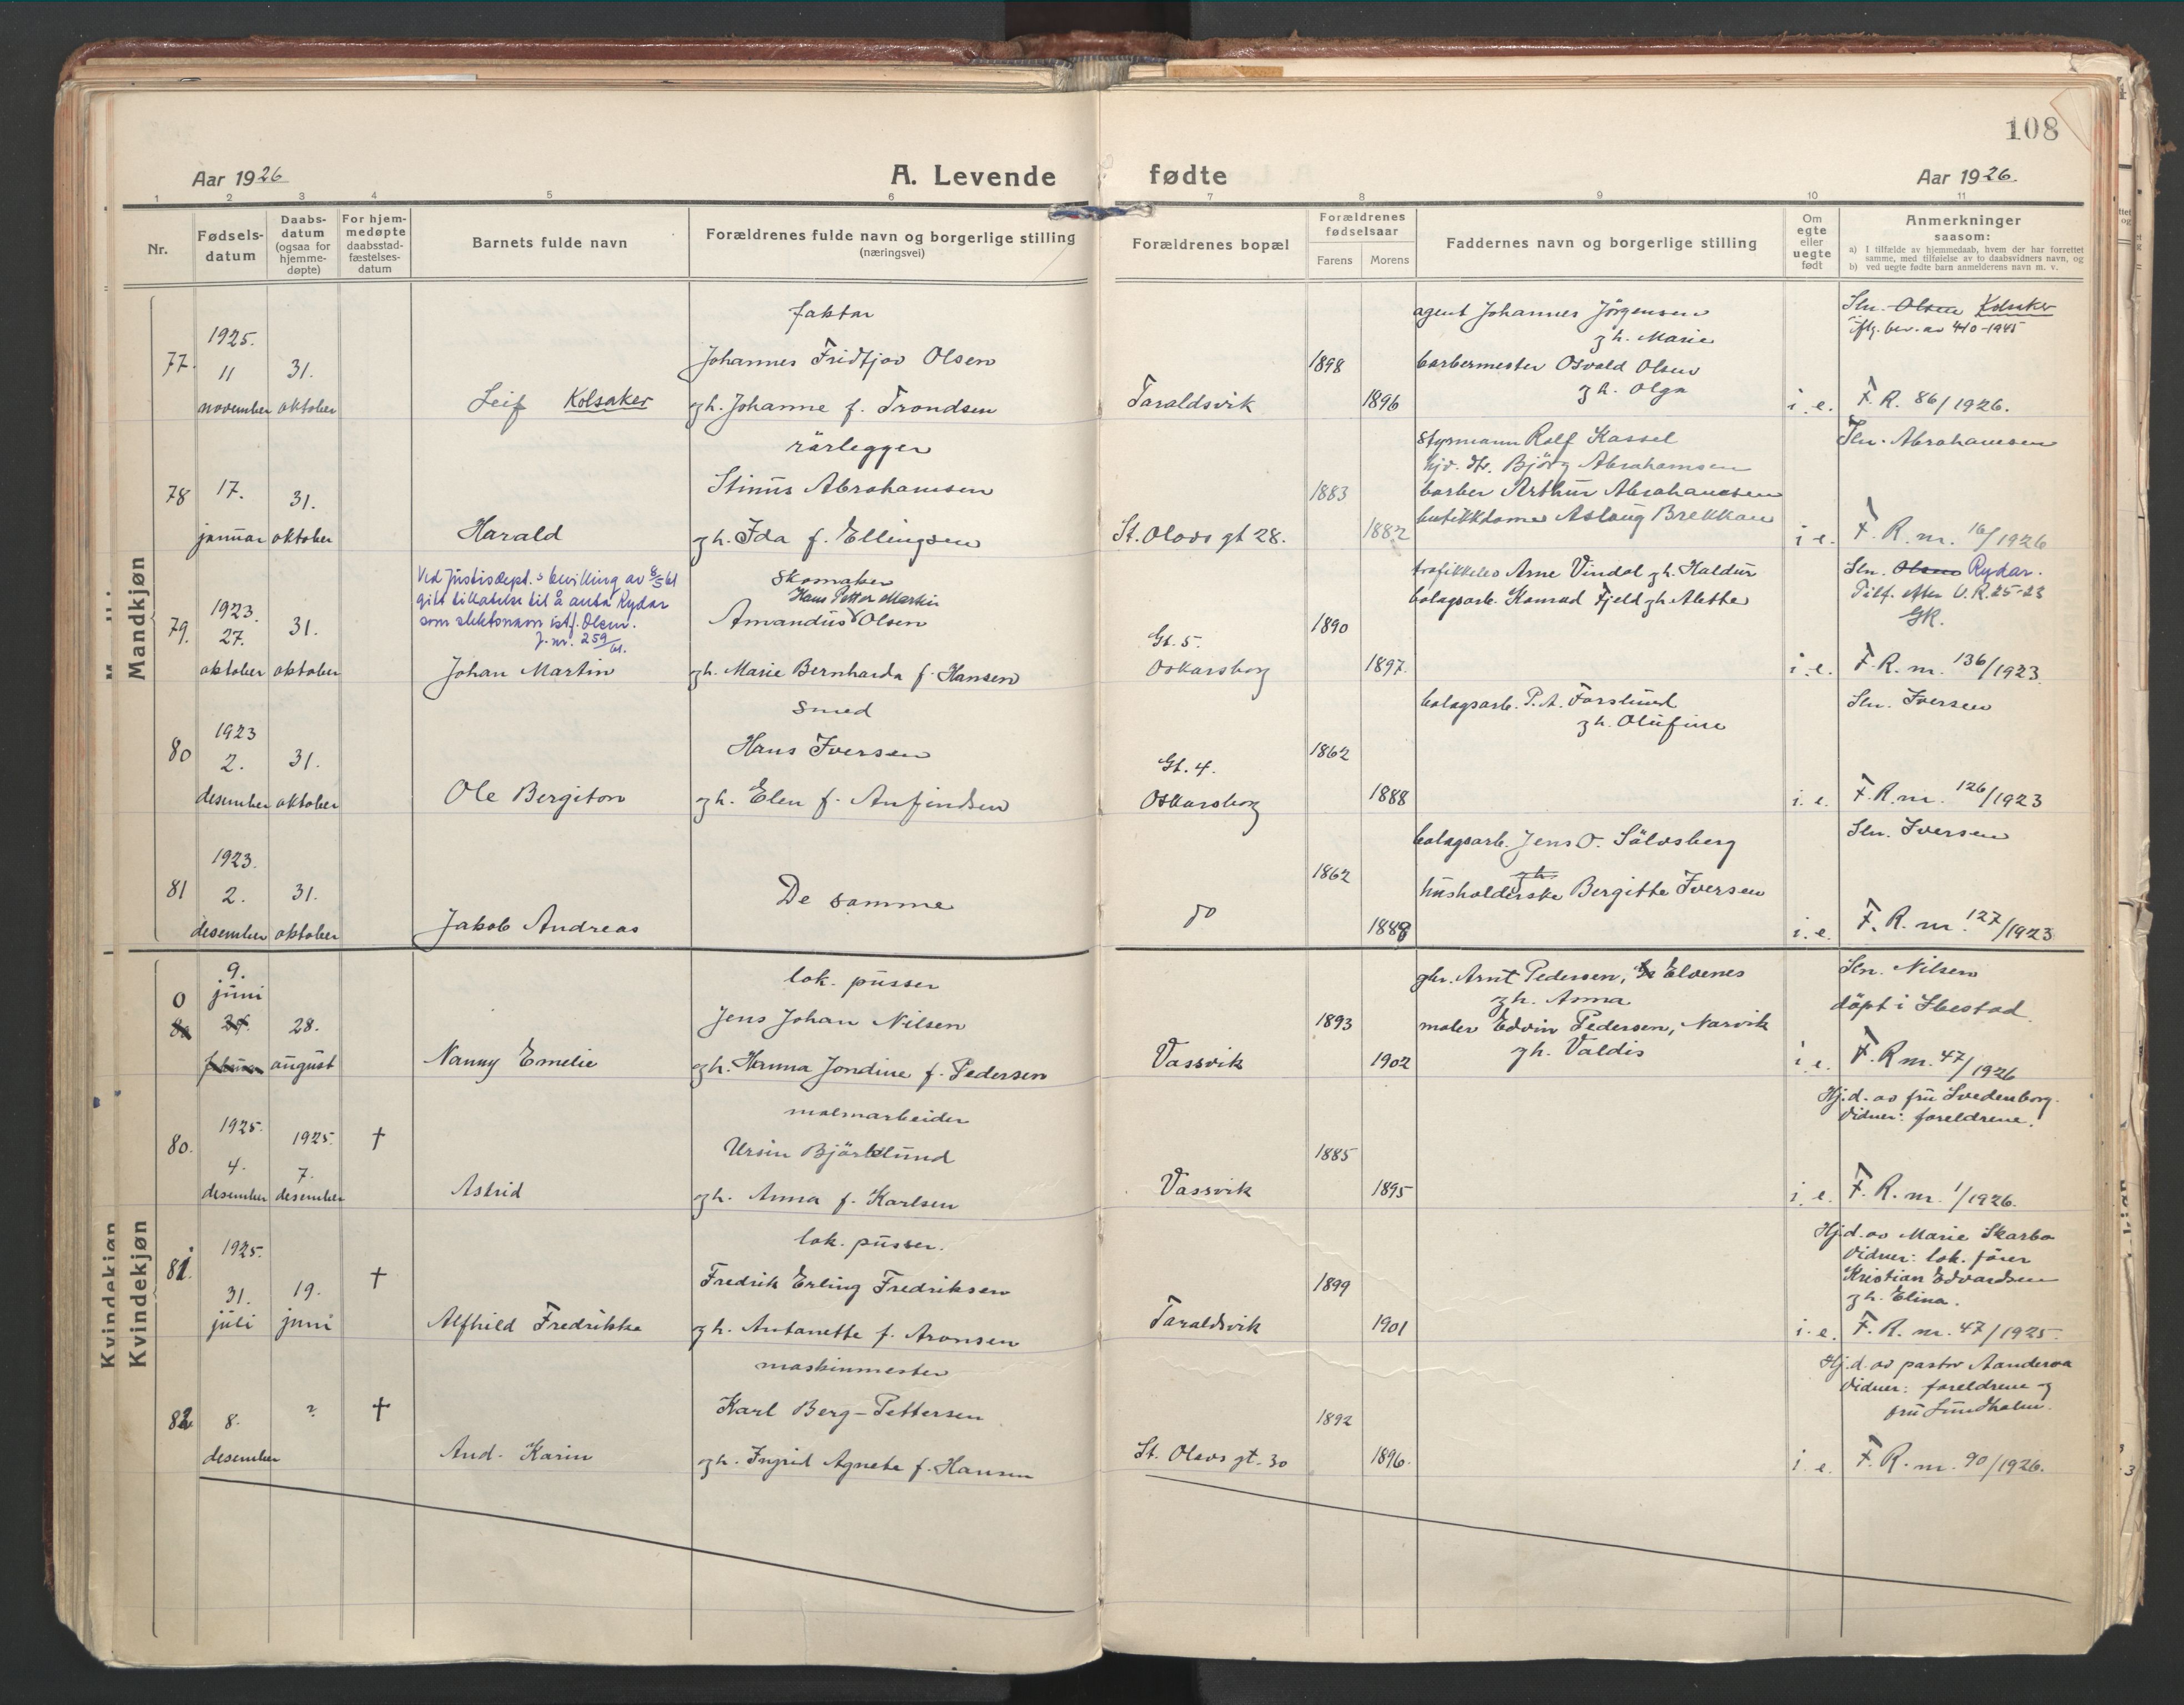 108
Aar 1926
A. Levende fødte
Aar 1926.
1 2 3 4 5 6 7 8 9 10 11
Nr.
Fødsels-
datum
Daabs-
datum
(ogsaa for
hjemme-
døpte)
For hjem-
medøpte
daabsstad-
fæstelses-
datum
Barnets fulde navn
Forældrenes fulde navn og borgerlige stilling
(næringsvei)
Forældrenes bopæl
Forældrenes
fødselsaar
Farens
Morens
Faddernes navn og borgerlige stilling
Om
egte
eller
uegte
født
Anmerkninger
saasom:
a) I tilfælde av hjemmedaab, hvem der har forrettet
samme, med tilføielse av to daabsvidners navn, og
b) ved uegte fødte barn anmelderens navn m. v.
Mandkjøn
77.
1925.
11
november
31.
oktober
Leif Kolsaker
faktor
Johannes Fridtjov Olsen
gh. Johanne f. Trondsen
Taraldsvik
1898
1896
agent Johannes Jörgensen
gh. Marie
barbermester Osvald Olsen
gh. Olga
i. e.
Sln. Olsen Kolsaker
iflg. bev. av 4/10-1945
F. R. 86/1926.
78
17.
januar
31.
oktober
Harald
rörlegger
Stinus Abrahamsen
gh. Ida f. Ellingsen
St. Olavs gt 28.
1883
1882
styrmann Rolf Kassel
hjv. dtr. Björg Abrahamsen
barber Arthur Abrahamsen
butikkdame Aslaug Brekkan
i e.
Sln. Abrahamsen
F. R. nr. 16/1926
79.
1923.
27.
oktober
31.
oktober
Ved Justisdept.s bevilling av 8/5 61
gitt tillatelse til å anta Rydar
som slektsnavn istf. Olsen.
J. nr. 259/61.
Johan Martin
skomaker
Hans Petter Martin
Amandus Olsen
gh. Marie Bernharda f. Hansen
Gt. 5.
Oskarsborg
1890
1897.
trafikkelev Arne Vindal gh. Haldur
bolagsarb. Konrad Fjeld gh Alette
i. e.
Sln. Olsen Rydar.
Tilf. efter U.R. 25-23
GK.
F. R. nr. 136/1923.
80
1923
2.
desember
31.
oktober
Ole Bergiton
smed
Hans Iversen
gh. Elen f. Anfindsen
Gt. 4.
Oskarsborg
1862
1888
bolagsarb. P. A. Forslund
gh. Olufine
i. e.
Sln. Iversen
F. R. nr. 126/1923
81
1923.
2.
desember
31.
oktober
Jakob Andreas
De samme
do
1862
1888
bolagsarb. Jens O. Sölvsberg
gh.
husholderske Bergitte Iversen
i. e.
Sln. Iversen
F. R. nr. 127/1923
Kvindekjøn
0
9.
juni
28.
august
Nanny Emelie
lok. pusser
Jens Johan Nilsen
gh. Hanna Jondine f. Pedersen
Vassvik
1893
1902
gbr. Arnt Pedersen, Elvenes
gh. Anna
maler Edvin Pedersen, Narvik
gh. Valdis
i. e.
Sln. Nilsen
döpt i Ibestad.
F. R nr. 47/1926
80.
1925.
4.
desember
1925.
7.
desember
†
Astrid
malmarbeider
Ursin Björklund
gh. Anna f. Karlsen
Vassvik
1885
1895
i. e.
Hj. d. av fru Svedenborg.
Vidner: foreldrene.
F. R. nr. 1/1926.
81.
1925.
31.
juli
19.
juni
†
Alfhild Fredrikke
lok. pusser.
Fredrik Erling Fredriksen
gh. Antonette f. Aronsen
Taraldsvik
1899
1901
i. e.
Hj. d. av Marie Skarbo
Vidner: lok. förer
Kristian Edvardsen
gh. Elina.
F. R. nr. 47/1925.
82
8.
desember
?
†
Aud. Karin
maskinmester
Karl Berg-Pettersen
gh. Ingrid Agnete f. Hansen
St. Olavs gt. 30
1892
1896.
i. e.
Hj. d. av pastor Aanderaa
Vidner: foreldrene og
fru Lundholm.
F. R. nr. 90/1926.